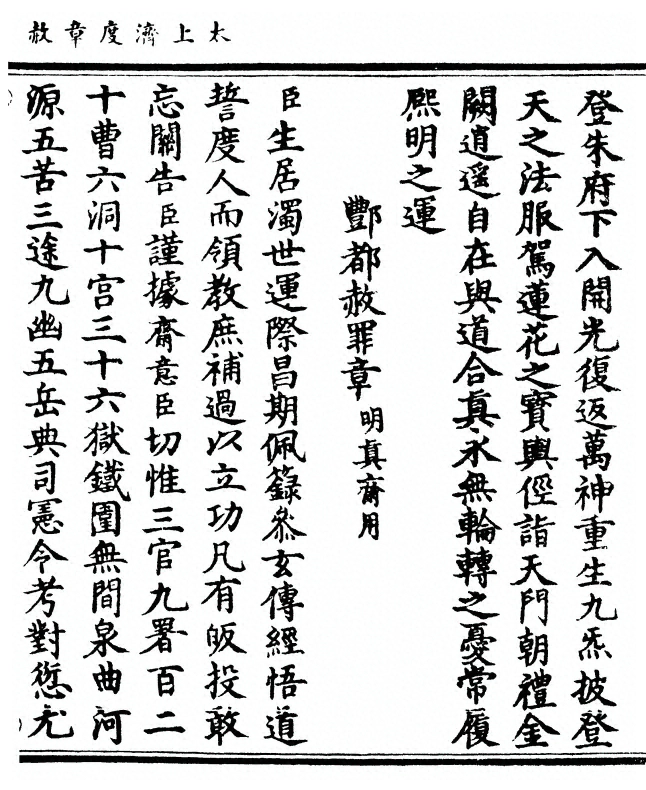 太上濟度章赦
登朱府下入開光復返萬神重生九炁披登
天之法服駕蓮花之寶輿徑詣天門朝禮金
闕逍遥自在與道合真永無輪轉之憂常履
熈明之運
酆都赦罪章明真齋用
臣生居濁世運際昌期佩籙叅玄傳經悟道
誓度人而領教庶補過以立功凡有皈投敢
忘關告臣謹據齋意臣切惟三官九署百二
十曹六洞十宫三十六獄鐵圍無間泉曲河
源五苦三途九幽五岳典司憲令考對愆尤